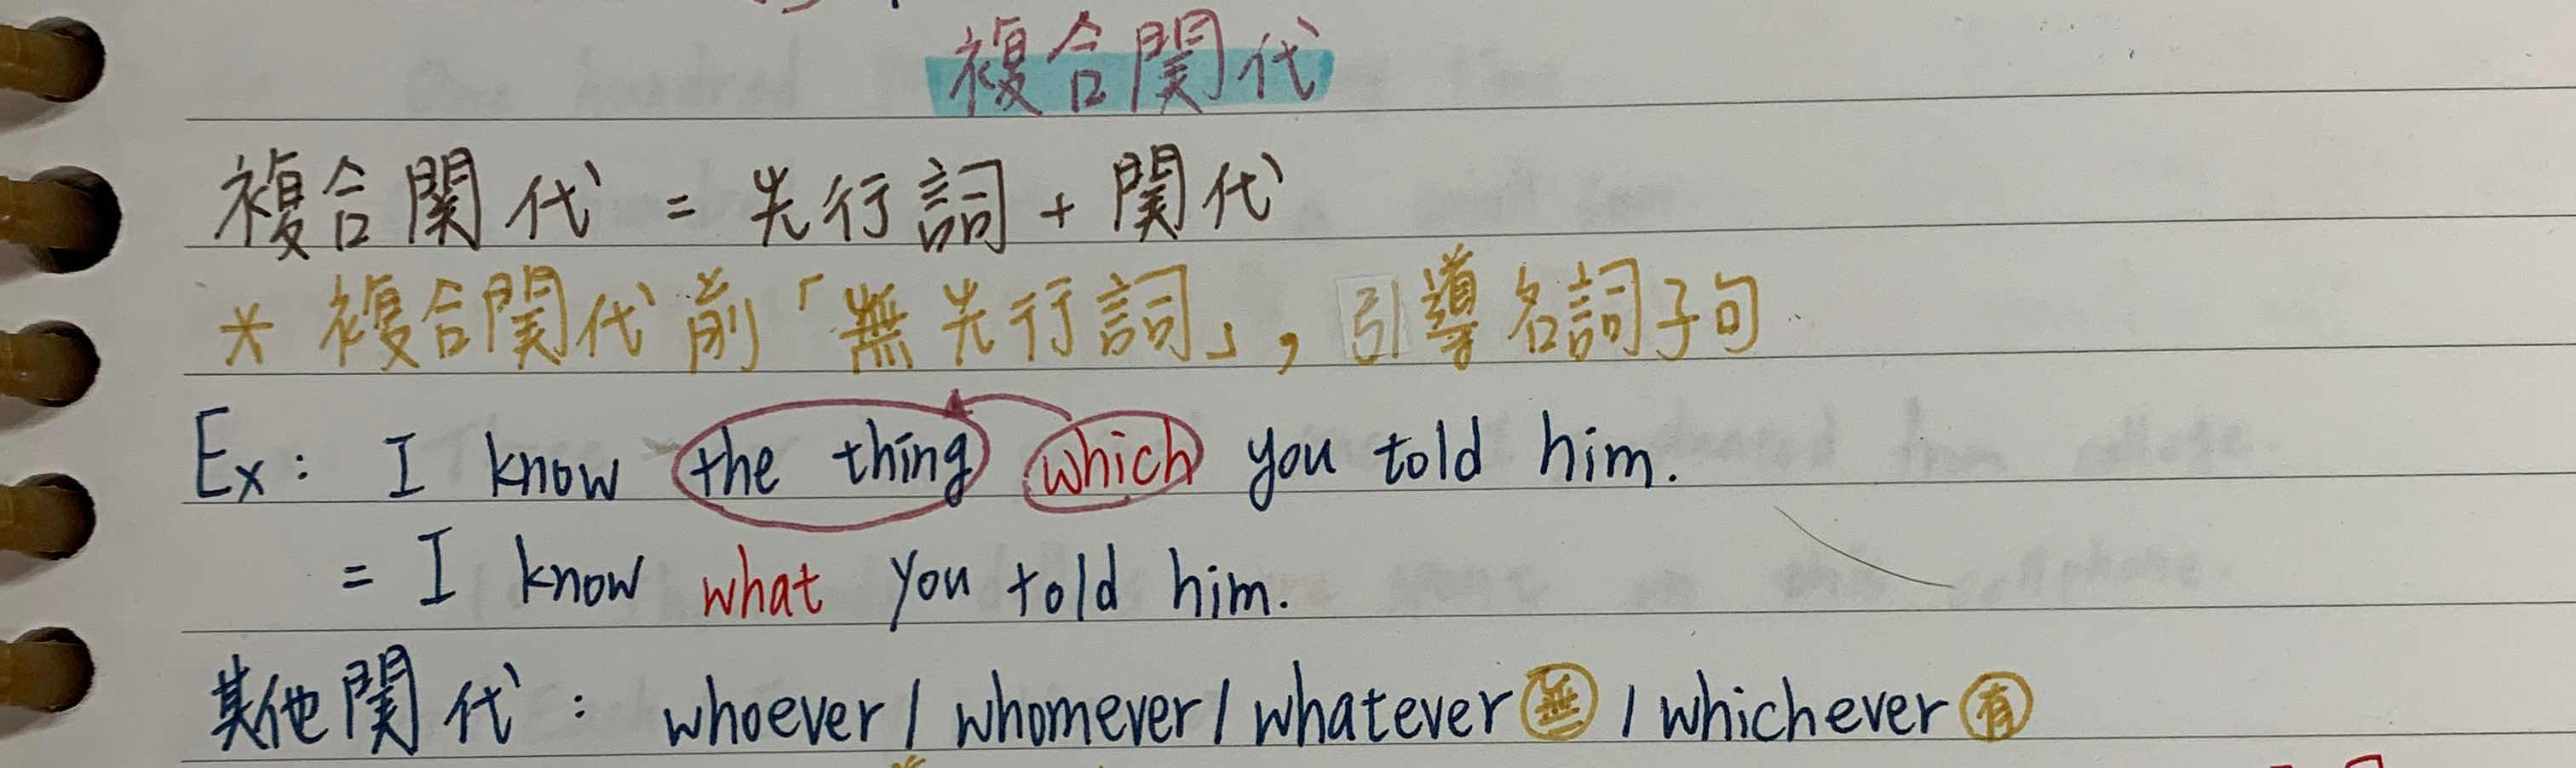 複合関代
複合関代 = 先行詞 + 関代
* 複合関代前「無先行詞」, 引導名詞子句
Ex: I know the thing which you told him.
= I know what you told him.
其他関代 : whoever / whomever / whatever 無 / whichever 有